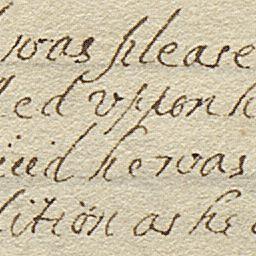 was please
led vppon h
iuid he was
dition as he